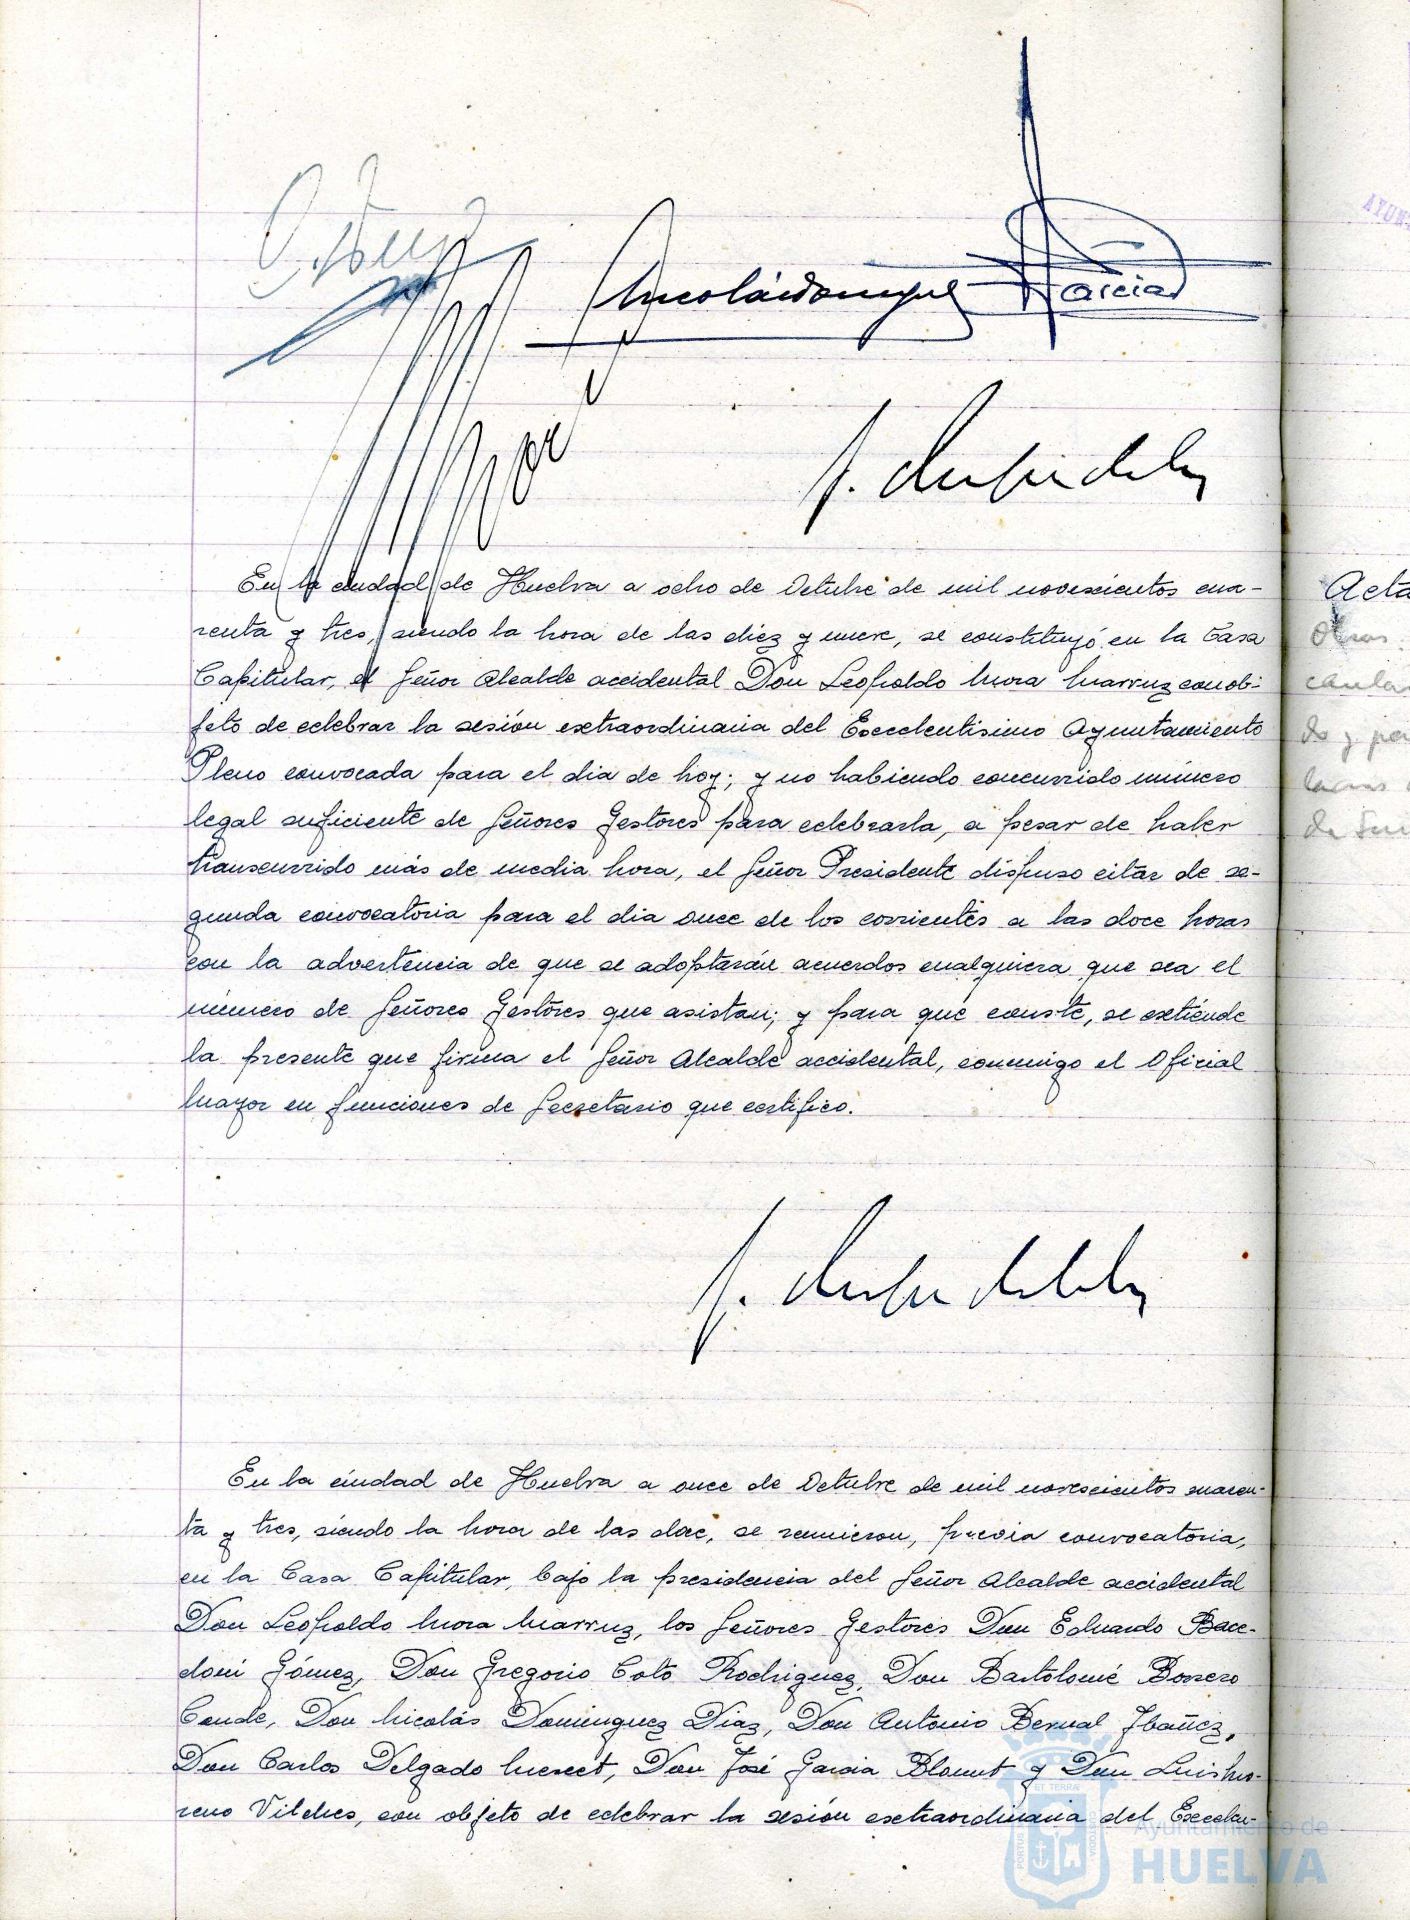 Nicolás Domínguez
García
En la ciudad de Huelva a ocho de Octubre de mil novescientos cua-
renta y tres, siendo la hora de las diez y nueve, se constituyó en la Casa
Capitular, el Señor Alcalde accidental Don Leopoldo Mora Marruz con ob-
jeto de celebrar la sesión extraordinaria del Excelentísimo Ayuntamiento
Pleno convocada para el dia de hoy; y no habiendo concurrido número
legal suficiente de Señores Gestores para celebrarla, a pesar de haber
transcurrido más de media hora, el Señor Presidente dispuso citar de se-
gunda convocatoria para el dia once de los corrientes a las doce horas
con la advertencia de que se adoptarán acuerdos cualquiera que sea el
número de Señores Gestores que asistan; y para que conste, se extiende
la presente que firma el Señor Alcalde accidental, conmigo el Oficial
Mayor en funciones de Secretario que certifico.
En la ciudad de Huelva a once de Octubre de mil novescientos cuaren-
ta y tres, siendo la hora de las doce, se reunieron, previa convocatoria,
en la Casa Capitular, bajo la presidencia del Señor Alcalde accidental
Don Leopoldo Mora Marruz, los Señores Gestores Don Eduardo Bace-
doni Gómez, Don Gregorio Coto Rodriguez, Don Bartolomé Borrero
Conde, Don Nicolás Dominguez Diaz, Don Antonio Bernal Ibañez,
Don Carlos Delgado Merect, Don José Garcia Blount y Don Luis Mo-
reno Vilches, con objeto de celebrar la sesión extraordinaria del Excelen-
Acta
Obras
do y
Ayuntamiento de
HUELVA